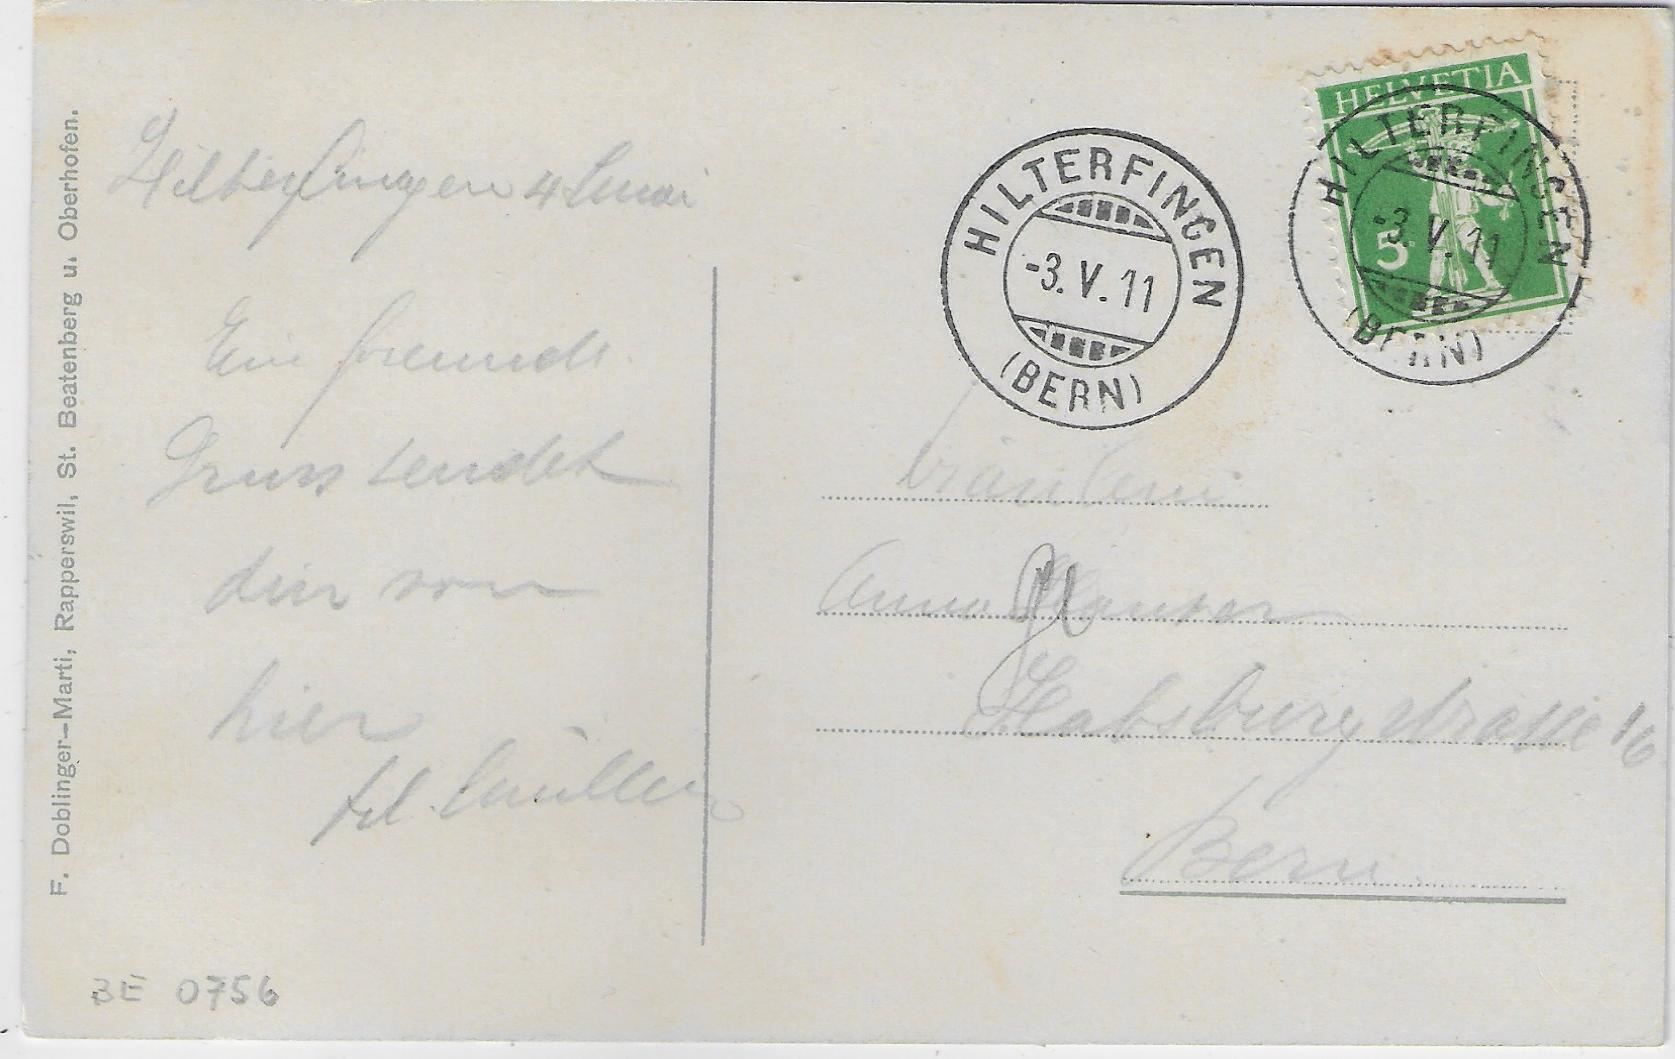 F. Doblinger-Marti, Rapperswil, St. Beatenberg u. Oberhofen.
Hilterfingen 4 
Ein freundl.
Gruss sendet
dir von
hier
Müller
BE 0756
HILTERFINGEN
-3. V. 11
(BERN)
HELVETIA
5
HILTERFINGEN
-3. V. 11
(BERN)
Fräulein
Anna Hauser
Habsburgstrasse 16
Bern